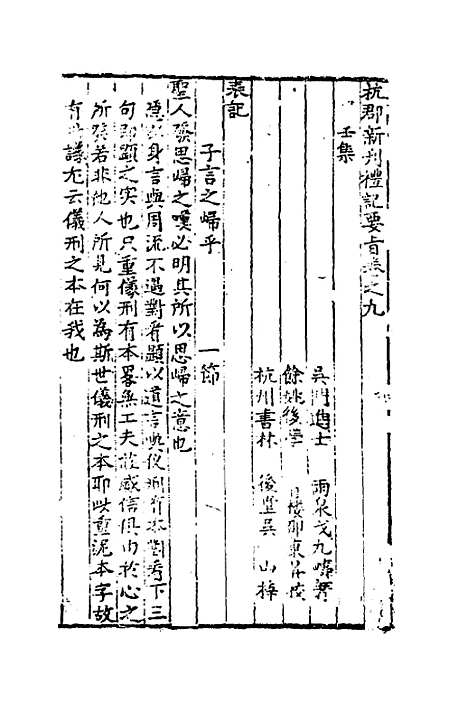 杭郡新刋禮記要旨卷之九
壬集
吳門進士　雨泉戈九疇
餘姚後學　東昇校
杭州書林　後塘吳　山梓
表記
子言之歸乎　一節
聖人發思歸之嘆必明其所以思歸之意也
隱以身言與周流不遇對看顯以道言與儀刑有本對看下三
句即顯之实也只重儀刑有本畧無工夫莊威信俱由於心之
所發若非他人所見何以為斯世儀刑之本耶此重泥本字故
有此議尤云儀刑之本在我也